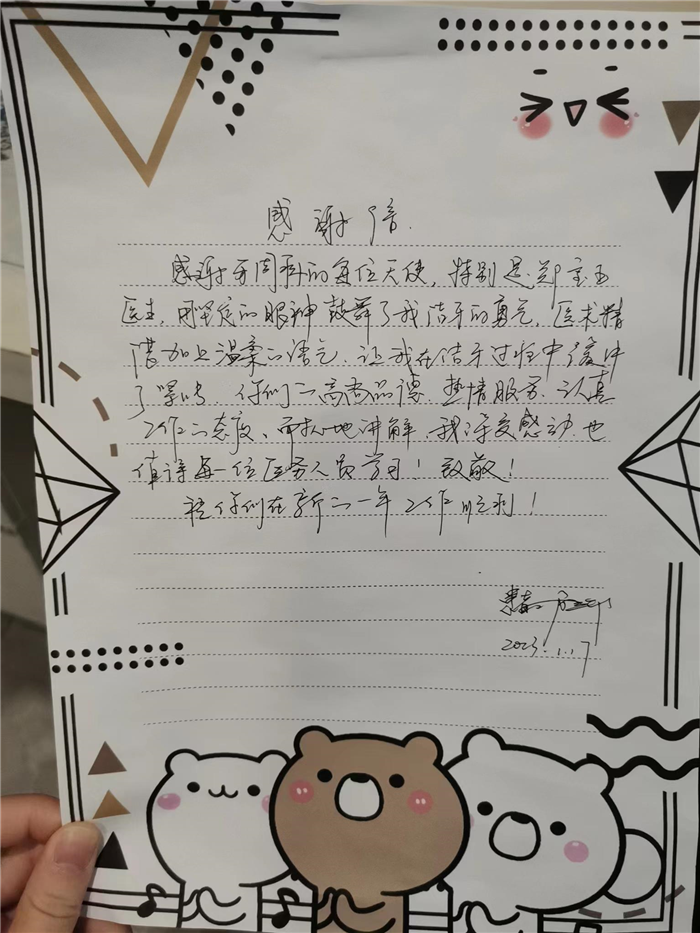 感谢信.
感谢牙周科的每位天使，特别是郑宝玉
医生，用坚定的眼神鼓舞了我洁牙的勇气，医术精
湛加上温柔的语气，让我在洁牙过程中缓冲
了紧张 你们的高尚品德、热情服务、认真
工作的态度、耐心地讲解，我深受感动，也
值得每一位医务人员学习！致敬！
祝你们在新的一年工作顺利！
2023.1.17